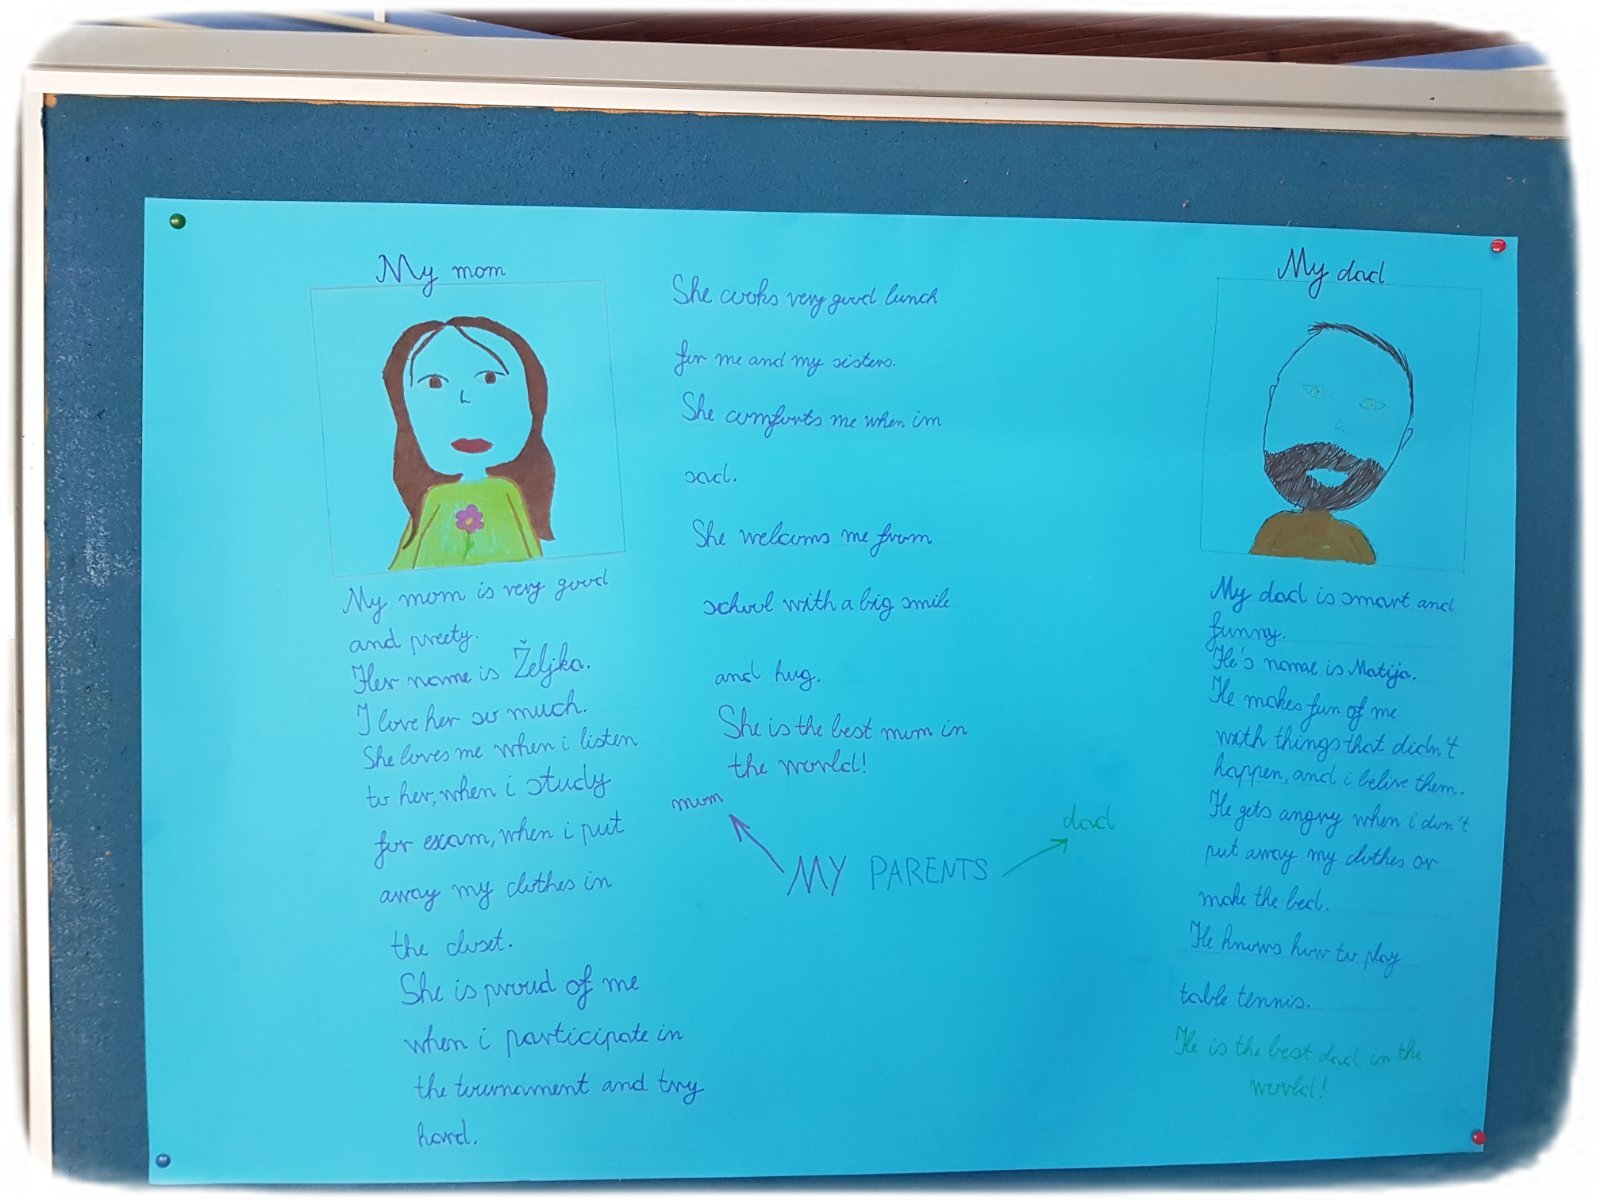 My mom
My mom is very good
and preety.
Her name is Željka.
I love her so much.
She loves me when i listen
to her, when i study
for exam, when i put
away my clothes in
the closet.
She is proud of me
when i participate in
the tournament and try
hard.
She cooks very good lunch
for me and my sisters.
She comforts me when im
sad.
She welcoms me from
school with a big smile
and hug.
She is the best mum in
the world!
mum
dad
MY PARENTS
My dad
My dad is smart and
funny.
He's name is Matija.
He makes fun of me
with things that didn't
happen, and i belive them.
He gets angry when i don't
put away my clothes or
make the bed.
He knows how to play
table tennis.
He is the best dad in the
world!